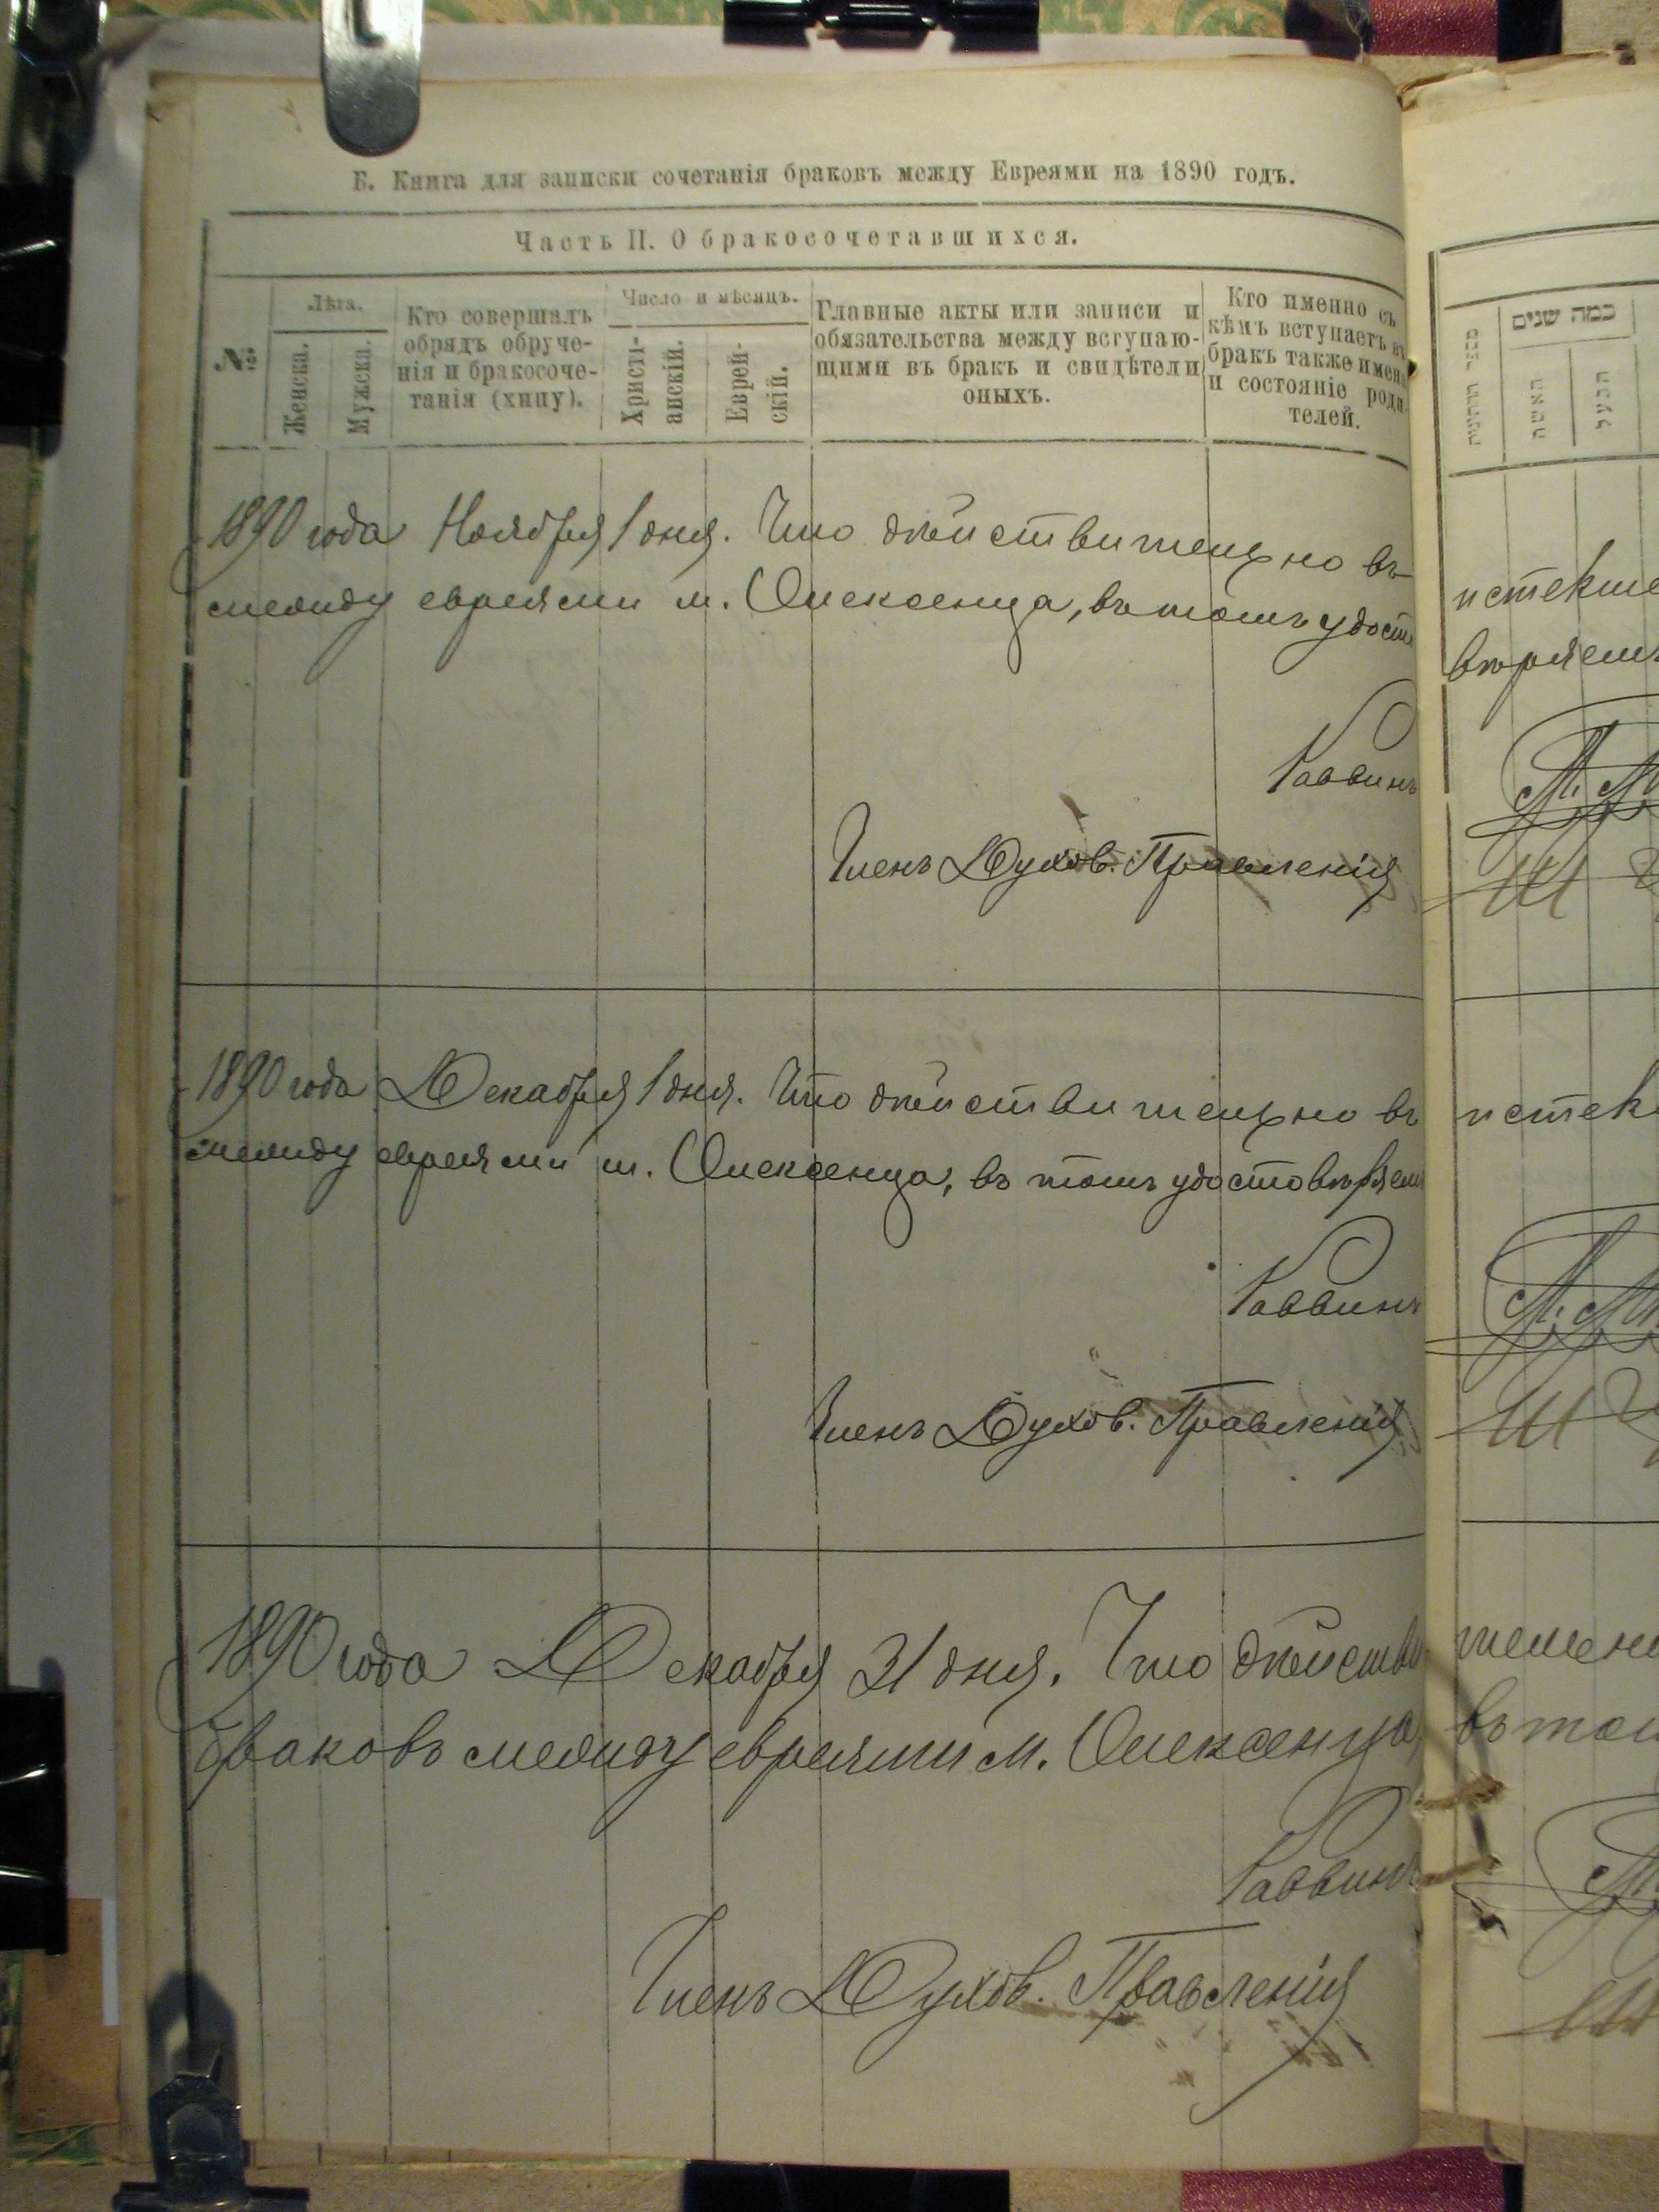 Б. Книга для записки сочетанія браковъ между Евреями на 1890 годъ.
Часть II. О бракосочетавшихся.
№
Лѣта.
Женска.
Мужска.
Кто совершалъ
обрядъ обруче-
нія и бракосоче-
танія (хипу).
Число и мѣсяцъ.
Христі-
анскій.
Еврей-
скій.
Главные акты или записи и
обязательства между вступаю-
щими въ бракъ и свидѣтели
оныхъ.
Кто именно съ
кѣмъ вступаетъ въ
бракъ также имена
и состояніе роди
телей.
כמה שנים
האשה
הבעל
1890 года Ноября 1 дня. Что дѣйствительно въ истекше
между евреями м. Олексенца, въ томъ удосто вѣряемъ
Раввинъ
Членъ Духов. Правленія
1890 года Декабря 1 дня. Что дѣйствительно въ истек
между евреями м. Олексенца, въ томъ удостовѣряем
Раввинъ
Членъ Духов. Правленія
1890 года Декабря 31 дня. Что дѣйстви тельн
браковъ между евреями м. Олексенца, въ том
Раввинъ
Членъ Духов. Правленія